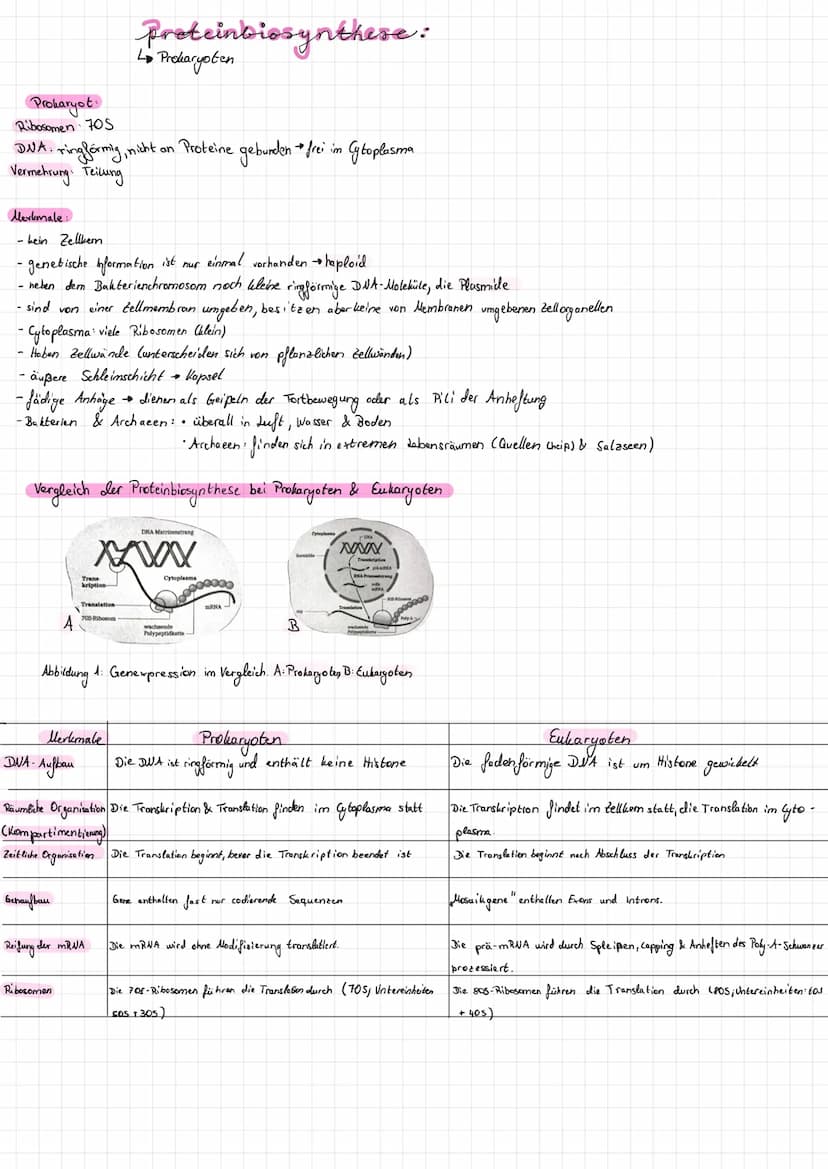 Proteinbiosynthese:
↳ Prokaryoten
Prokaryot:
Ribosomen: 70S
DNA: ringförmig, nicht an Proteine gebunden → frei im Cytoplasma
Vermehrung: Teilung
Merkmale:
- kein Zellkern
- genetische Information ist nur einmal vorhanden → haploid
- neben dem Bakterienchromosom noch kleine ringförmige DNA-Moleküle, die Plasmide
- sind von einer Zellmembran umgeben, besitzen aber keine von Membranen umgebenen Zellorganellen
- Cytoplasma: viele Ribosomen (klein)
- Haben Zellwände (unterscheiden sich von pflanzlichen Zellwänden)
- äußere Schleimschicht → Kapsel
- fädige Anhäge → dienen als Geißeln der Fortbewegung oder als Pili der Anheftung
- Bakterien & Archaeen: • überall in Luft, Wasser & Boden
• Archaeen: finden sich in extremen Lebensräumen (Quellen (heiß) & Salzseen)
Vergleich der Proteinbiosynthese bei Prokaryoten & Eukaryoten
DNA Matrizenstrang
Trans-
kription
Cytoplasma
Translation
mRNA
70S-Ribosom
wachsende
Polypeptidkette
A
Cytoplasma
DNA
Transkription
prä-mRNA
RNA-Prozessierung
mRNA
80S-Ribosom
Translation
Poly-A
wachsende
Polypeptidkette
B
Abbildung 1: Genexpression im Vergleich. A: Prokaryoten, B: Eukaryoten
Merkmale Prokaryoten Eukaryoten
DNA-Aufbau Die DNA ist ringförmig und enthält keine Histone Die fadenförmige DNA ist um Histone gewickelt
Räumliche Organisation Die Transkription & Translation finden im Cytoplasma statt Die Transkription findet im Zellkern statt, die Translation im Cyto-
(Kompartimentierung) plasma.
Zeitliche Organisation Die Translation beginnt, bevor die Transkription beendet ist Die Translation beginnt nach Abschluss der Transkription
Genaufbau Gene enthalten fast nur codierende Sequenzen „Mosaikgene" enthalten Exons und Introns.
Reifung der mRNA Die mRNA wird ohne Modifizierung translatiert. Die prä-mRNA wird durch Spleißen, Capping & Anheften des Poly-A-Schwanzes
prozessiert.
Ribosomen Die 70S-Ribosomen führen die Translation durch (70S, Untereinheiten Die 80S-Ribosomen führen die Translation durch (80S, Untereinheiten: 60S
50S + 30S) + 40S)